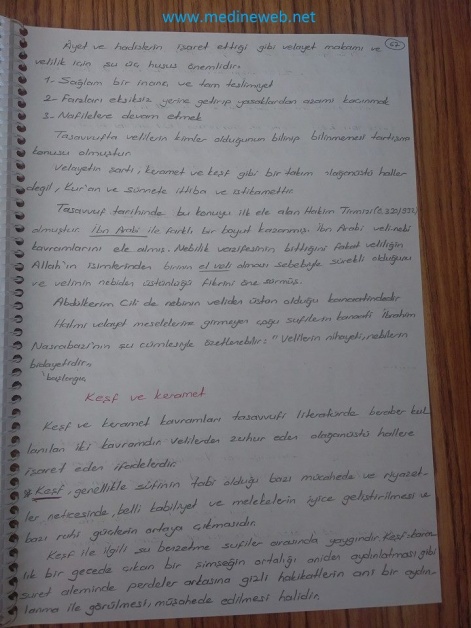 www.medineweb.net
67
Ayet ve hadislerin işaret ettiği gibi velayet makamı ve
velilik için şu üç husus önemlidir.
1- Sağlam bir inanç ve tam teslimiyet
2- Farzları eksiksiz yerine getirip yasaklardan azami kaçınmak
3- Nafilelere devam etmek
Tasavvufta velilerin kimler olduğunun bilinip bilinmemesi tartışma
konusu olmuştur.
Velayetin şartı, keramet ve keşf gibi bir takım olağanüstü haller
değil, Kur'an ve sünnete ittiba ve istikamettir.
Tasavvuf tarihinde bu konuyu ilk ele alan Hakim Tirmizi
olmuştur. İbn Arabi ile farklı bir boyut kazanmış. İbn Arabi veli-nebi
kavramlarını ele almış. Nebilik vazifesinin bittiğini fakat veliliğin
Allah'ın isimlerinden birinin el veli olması sebebiyle sürekli olduğunu
ve velinin nebiden üstünlüğü fikrini öne sürmüş.
Abdülkerim Cili de nebinin veliden üstün olduğu kanaatindedir
Hatmi velayet meselelerine girmeyen çoğu sufilerin kanaati İbrahim
Nasrabazi'nin şu cümlesiyle özetlenebilir: "Velilerin nihayeti, nebilerin
bidayetidir"
başlangıç
Keşf ve keramet
Keşf ve keramet kavramları tasavvufi literatürde beraber kul-
lanılan iki kavramdır. Velilerden zuhur eden olağanüstü hallere
işaret eden ifadelerdir.
* Keşf, genellikle sûfinin tabi olduğu bazı mücahede ve riyazet-
ler neticesinde, belli kabiliyet ve melekelerin iyice geliştirilmesi ve
bazı ruhi güçlerin ortaya çıkmasıdır.
Keşf ile ilgili şu benzetme sufiler arasında yaygındır. Keşf: karan-
lık bir gecede çıkan bir şimşeğin ortalığı aniden aydınlatması gibi
suret aleminde perdeler arkasına gizli hakikatlerin ani bir aydın-
lanma ile görülmesi, müşahede edilmesi halidir.